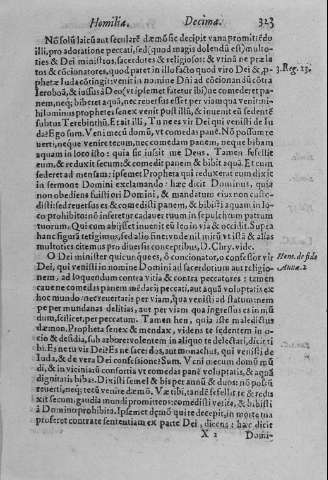 Homilia. Decima. 323
Nõ solũ laicũ aut secularẽ dæmõ sic decipit vana promittẽdo
illi, pro adoratione peccati, sed (quod magis dolendũ est) multo-
ties & Dei ministros, sacerdotes & religiosos: & vtinã ne præla
tos & cõcionatores, quod patet in illo facto quod viro Dei & p̱-
3. Reg. 13.
phetæ Iuda cõtingit: venit in nomine Dñi ad cõcionandũ cõtra
Ieroboã, & iussus à Deo (vt ipsemet fatetur ibi) ne comederet pa-
nem, neq; biberet aquã, nec reuersus esset per viam qua venit: ni-
hilominus propheta senex venit post illũ, & inuenit eũ sedentẽ
subtus Terebinthũ. Et ait illi, Tu ne es vir Dei qui venisti de Iu
da? Ego sum. Veni mecũ domũ, vt comedas panẽ. Nõ possum re
uerti, neque venire tecum, nec comedam panem, neque bibam
aquam in loco isto: quia sic iussit me Deus. Tamen fefellit
eum, & reduxit secum: & comedit panem & bibit aquã. Et cum
sederet ad mensam: ipsemet Propheta qui reduxerat eum dixit
in sermone Domini exclamando: hæc dicit Dominus, quia
non obediens fuisti ori Domini, & mandatum eius non custo-
disti: sed reuersus es & comedisti panem, & bibisti aquam in lo-
co prohibito: nõ inferetur cadauer tuum in sepulchrum patrum
tuorum. Qui cum abijsset inuenit eũ leo in via & occidit. Supra
hanc figurã tetigimus, sed alio fine: vnde ni miũ vt istã & alias
multoties citemus pro diuersis conceptibus, D. Chry. vide.
O Dei minister quicunque es, ô concionator, ô confessor vir
Hom. de fide
Dei, qui venisti in nomine Domini ad sacerdotium aut religio-
Annæ. 2
nem, ad loquendum contra vitia & contra peccatores: tamen
caue ne comedas panem mẽdacij peccati, aut aquã voluptatis ex
hoc mundo: nec reuertaris per viam, qua venisti ad statum: nem
pe per mundanas delitias, aut per viam qua ingressus es in mũ
dum, scilicet, per peccatum. Tamen heu, quia iste maledictus
dæmon. Propheta senex & mendax, videns te sedentem in o-
cio & desidia, sub arbore violentem in aliquo te delectari, dicit ti
bi. Es ne tu vir Dei? Es ne sacerdos, aut monachus, qui venisti de
Iuda, & de vera Dei confessione? Sum. Veni mecum domũ mũ
di, & in viciniarũ consortia vt comedas panẽ voluptatis, & aquã
dignitatis bibas. Dixisti semel & bis per annũ & duos: nõ possũ
reuerti, neq; tecũ venire domũ. Væ tibi, tandẽ fefellit te & redu
xit secum: gaudia mundi promittens: comedisti vetita, & bibisti
à Domino prohibita. Ipsemet dęmõ qui te decepit, in morte tua
proferet contra te sententiam ex parte Dei, dicens: hæc dicit
X 2 Domi-